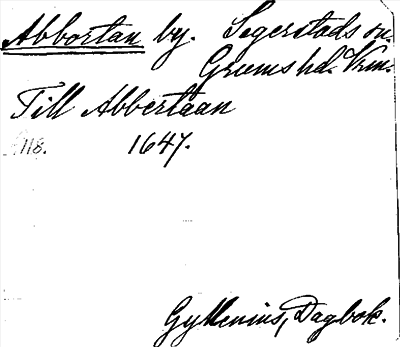 Abbortan by. Segerstads sn.
Grums hd. Vrm.
Till Abbertaan
118. 1647.
Gyllenius, Dagbok.